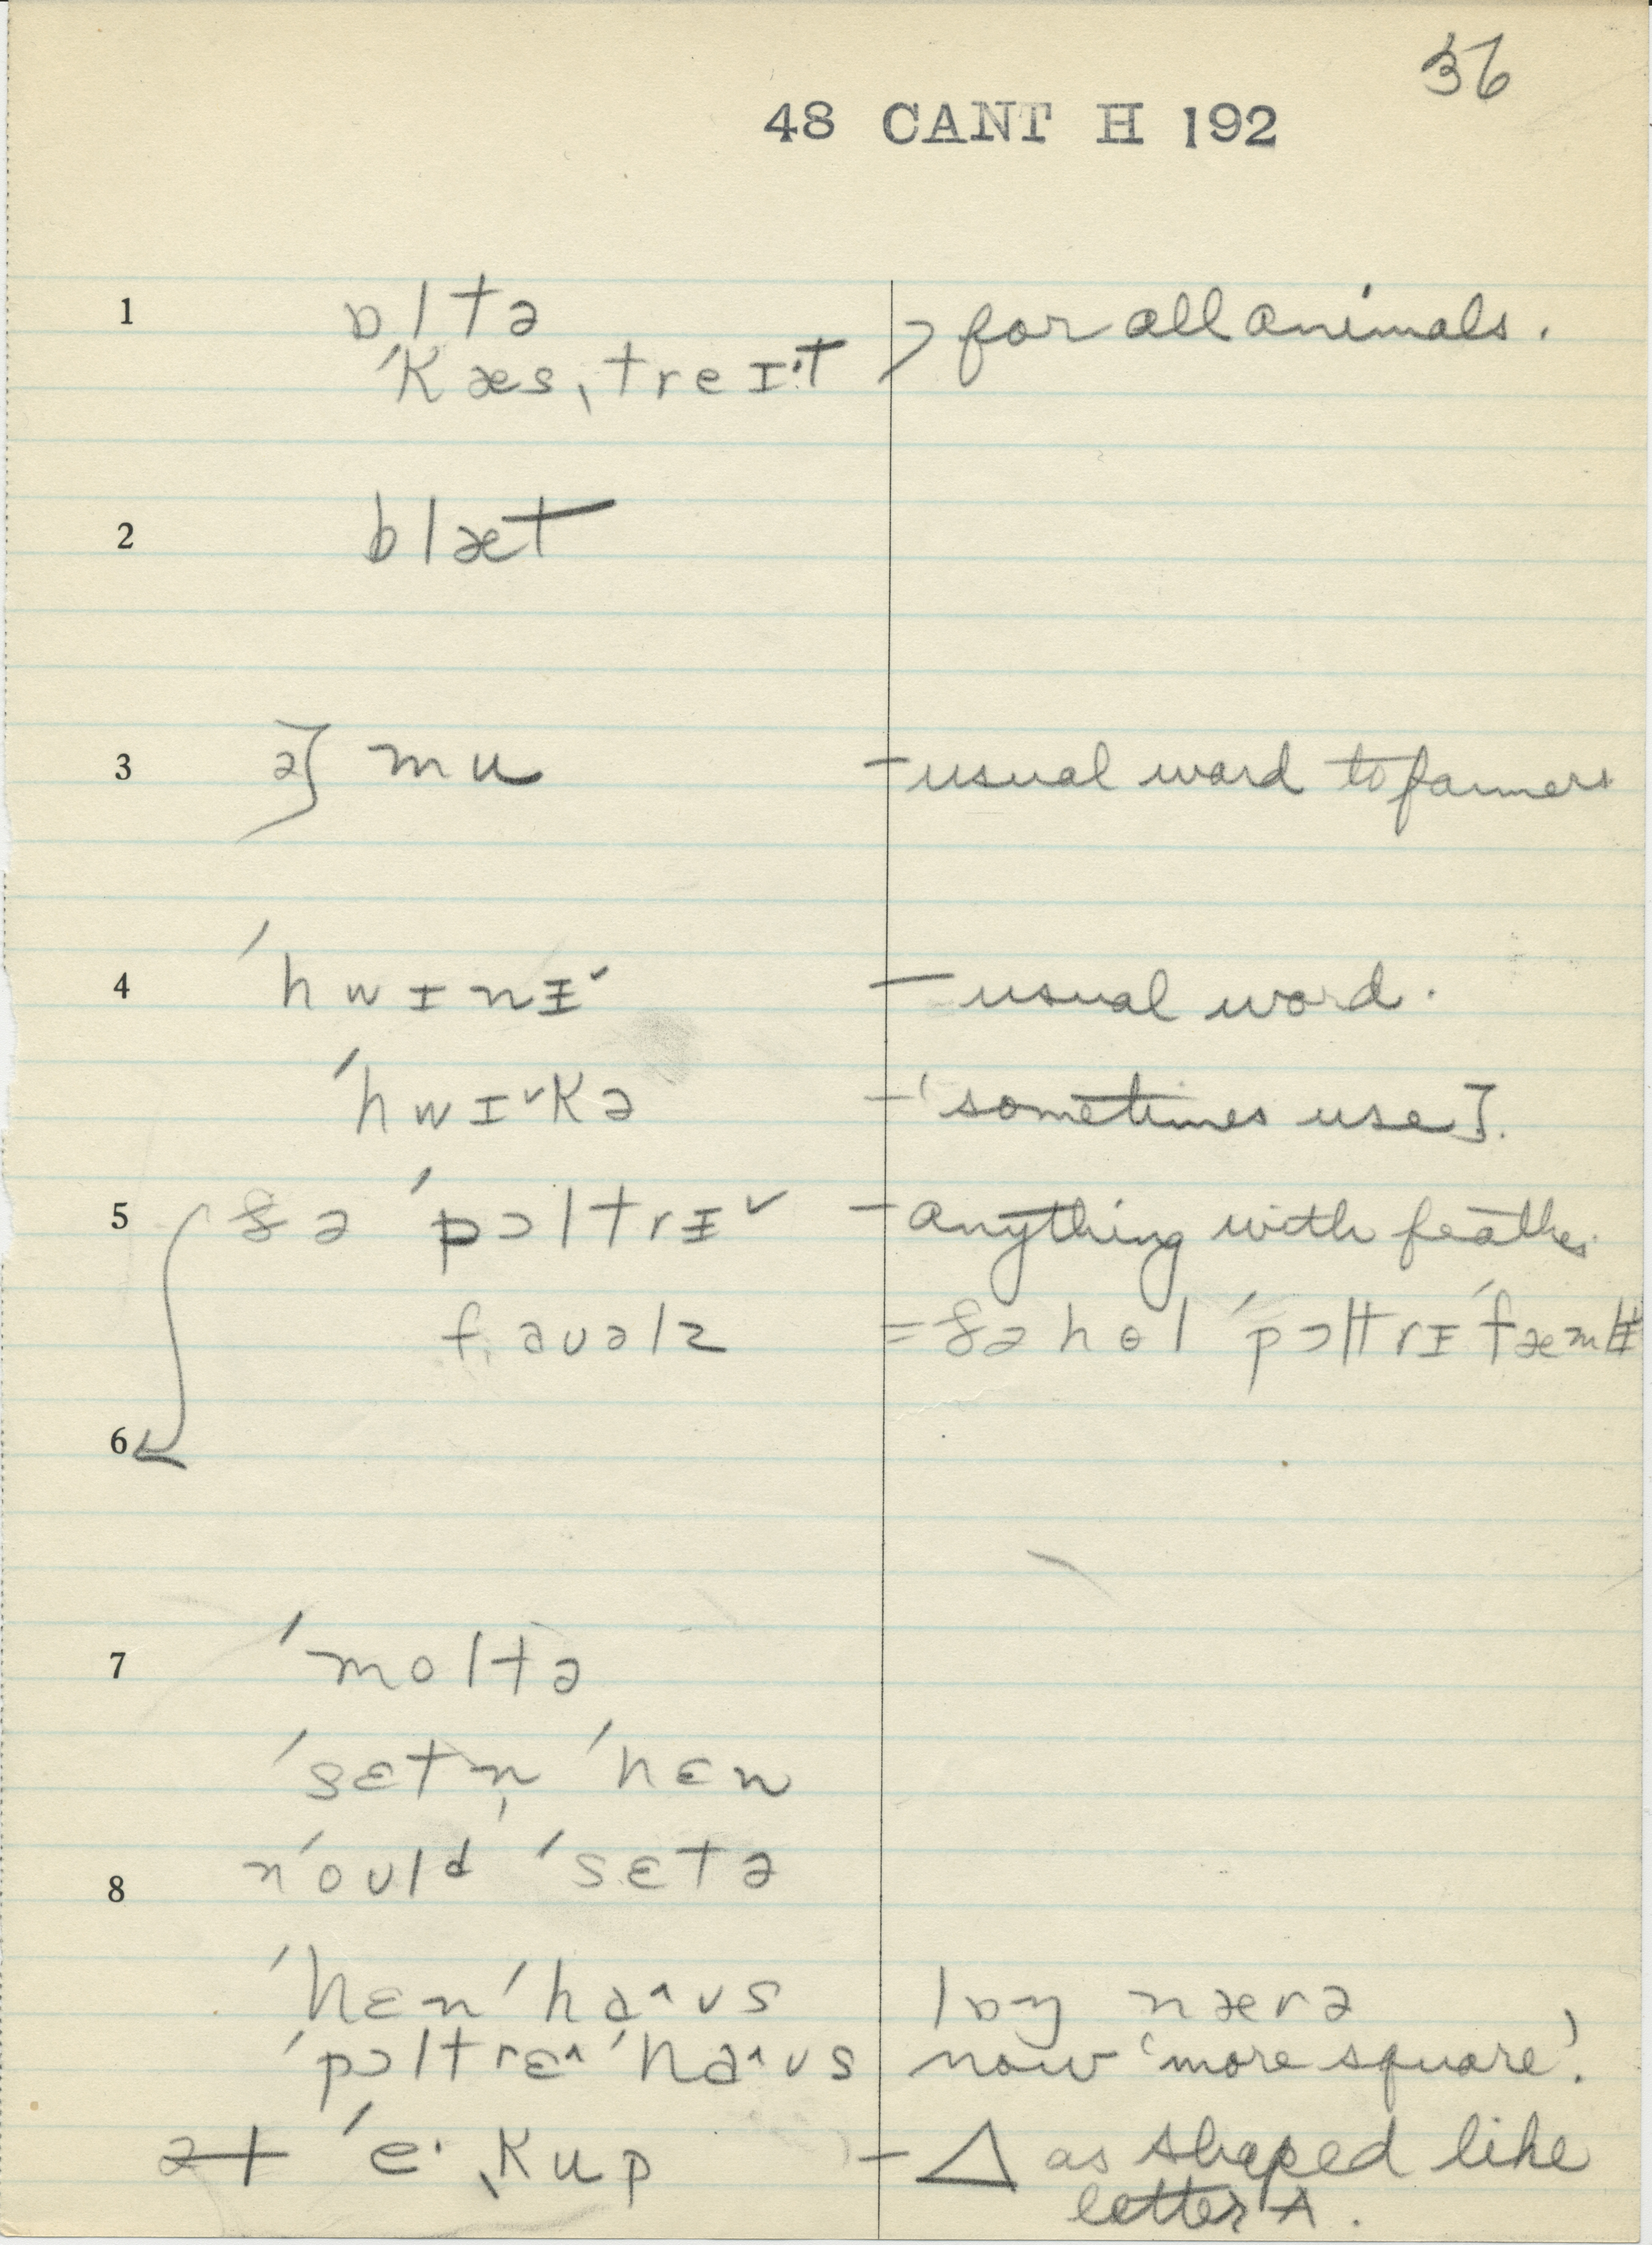 36
48 CANT H 192
1 ɒltə
ˈkæsˌtreɪˑt > for all animals.
2 blæt
3 ə} mu – usual word to farmers
4 ˈhwɪnɨˇ – usual word.
ˈhwɪˇkə – ‘sometimes use].
5 ðə ˈpɔltrɨˇ – anything with feathers
f.aʊəlz = ðə hɵl ˈpɔltrɪ ˈfæmlɨ
6
7 ˈmoltə
ˈsɛtn̩ ˈhɛn
ˈould ˈsɛtə
8
ˈhɛn ˈha^ʊs lɒŋ nærə
ˈpɔltrɛ^ ˈha^ʊs now ‘more square’.
ət ˈeˑˌkup – △ as shaped like
letter A.